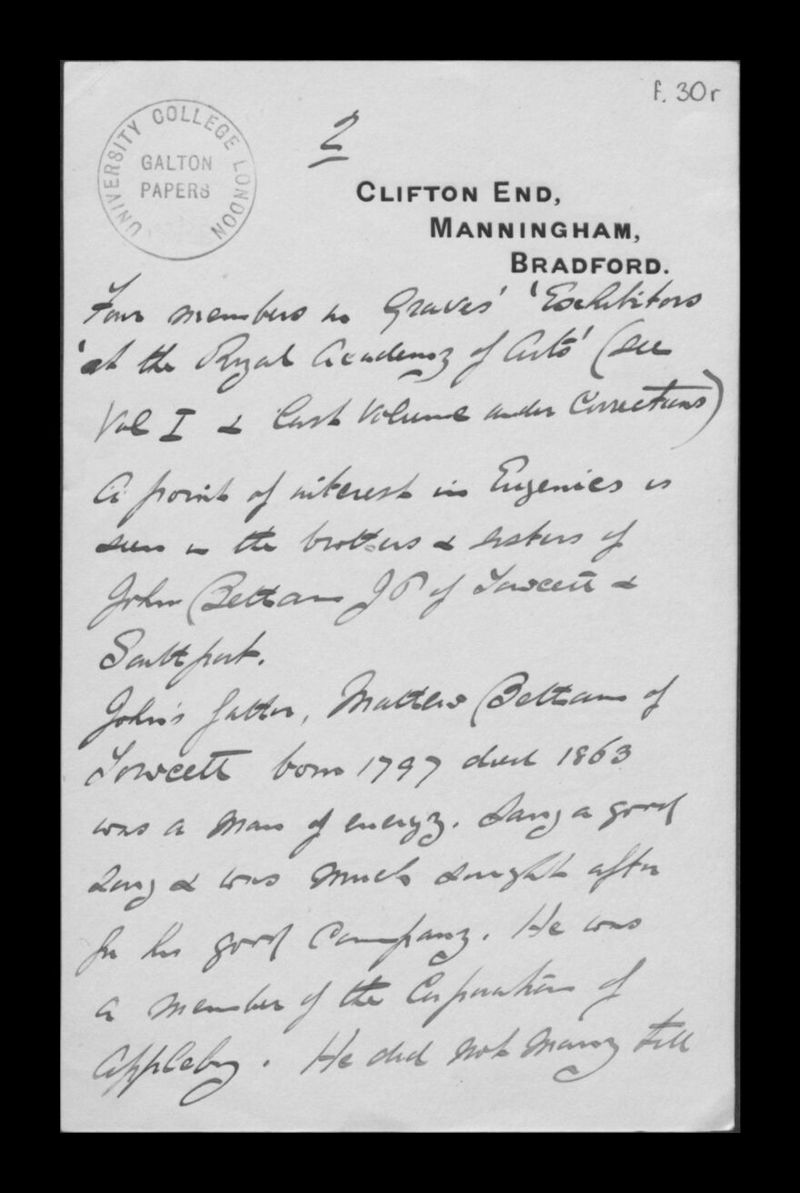 f. 30r
UNIVERSITY COLLEGE LONDON
GALTON
PAPERS
2
CLIFTON END,
MANNINGHAM,
BRADFORD.
Four members in Graves' 'Exhibitors
'at the Royal Academy of Arts' (see
Vol I & last Volume under Corrections)
A point of interest in Eugenics is
seen in the brothers & sisters of
John Bettam JP of &
Southport.
John's father, Matthew Bettam of
born 1797 died 1863
was a man of energy. Sang a good
song & was much sought after
for his good company. He was
a member of the Corporation of
Appleby. He did not marry till